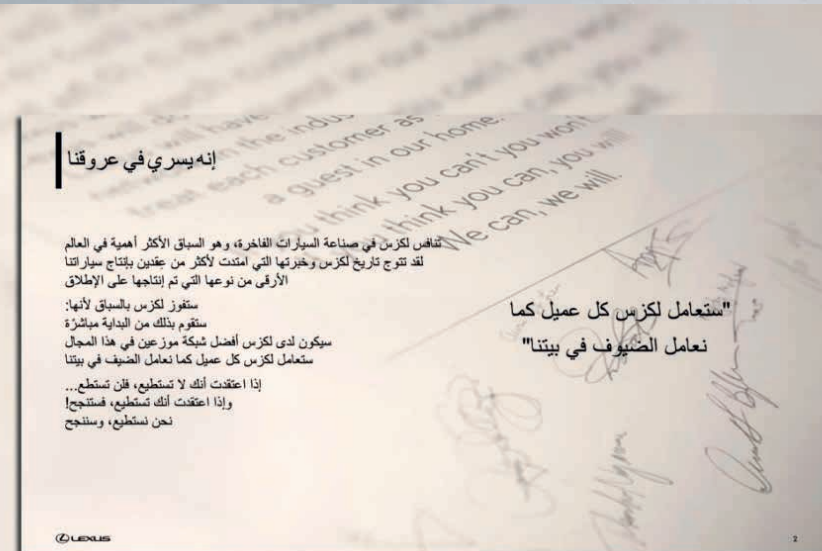 the indus
treat each customer as
a guest in our home.
you think you can't you won't
think you can, you will
We can, we will.
إنه يسري في عروقنا
تنافس لكزس في صناعة السيارات الفاخرة، وهو السباق الأكثر أهمية في العالم
لقد تتوج تاريخ لكزس وخبرتها التي امتدت لأكثر من عقدين بإنتاج سياراتنا
الأرقى من نوعها التي تم إنتاجها على الإطلاق
ستفوز لكزس بالسباق لأنها:
ستقوم بذلك من البداية مباشرة
سيكون لدى لكزس أفضل شبكة موزعين في هذا المجال
ستعامل لكزس كل عميل كما نعامل الضيف في بيتنا
إذا اعتقدت أنك لا تستطيع، فلن تستطع...
وإذا اعتقدت أنك تستطيع، فستنجح!
نحن نستطيع، وسننجح
"ستعامل لكزس كل عميل كما
نعامل الضيوف في بيتنا"
LEXUS
2